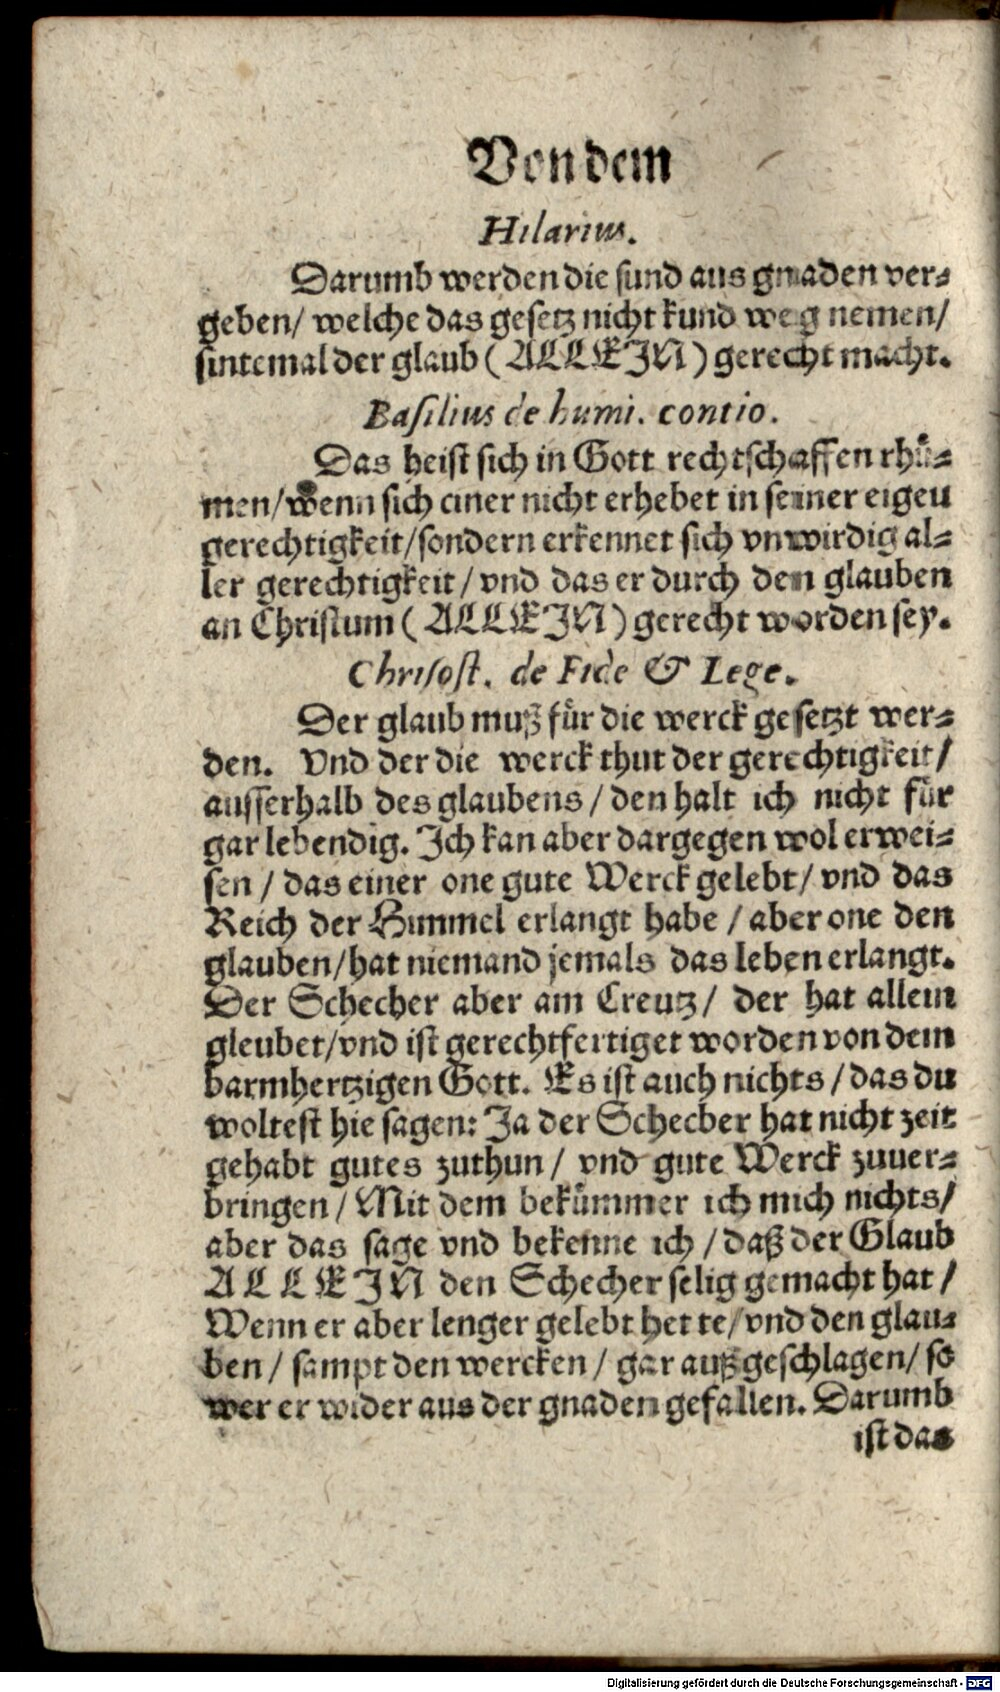 Von dem
Hilarius.
Darumb werden die sund aus gnaden ver-
geben/ welche das gesetz nicht kund weg nemen/
sintemal der glaub (ALLEIN) gerecht macht.
Basilius de humi. contio.
Das heist sich in Gott rechtschaffen rhů-
men/ wenn sich einer nicht erhebet in seiner eigen
gerechtigkeit/ sondern erkennet sich vnwirdig al-
ler gerechtigkeit/ vnd das er durch den glauben
an Christum (ALLEIN) gerecht worden sey.
Chrisost. de Fide & Lege.
Der glaub muß fůr die werck gesetzt wer-
den. Vnd der die werck thut der gerechtigkeit/
ausserhalb des glaubens/ den halt ich nicht fůr
gar lebendig. Ich kan aber dargegen wol erwei-
sen/ das einer one gute Werck gelebt/ vnd das
Reich der Himmel erlangt habe/ aber one den
glauben/ hat niemand jemals das leben erlangt.
Der Schecher aber am Creutz/ der hat allein
gleubet/ vnd ist gerechtfertiget worden von dem
barmhertzigen Gott. Es ist auch nichts/ das du
woltest hie sagen: Ja der Schecher hat nicht zeit
gehabt gutes zuthun/ vnd gute Werck zuuer-
bringen/ Mit dem bekůmmer ich mich nichts/
aber das sage vnd bekenne ich/ daß der Glaub
ALLEIN den Schecher selig gemacht hat/
Wenn er aber lenger gelebt hette/ vnd den glau-
ben/ sampt den wercken/ gar außgeschlagen/ so
wer er wider aus der gnaden gefallen. Darumb
ist das
Digitalisierung gefördert durch die Deutsche Forschungsgemeinschaft - DFG